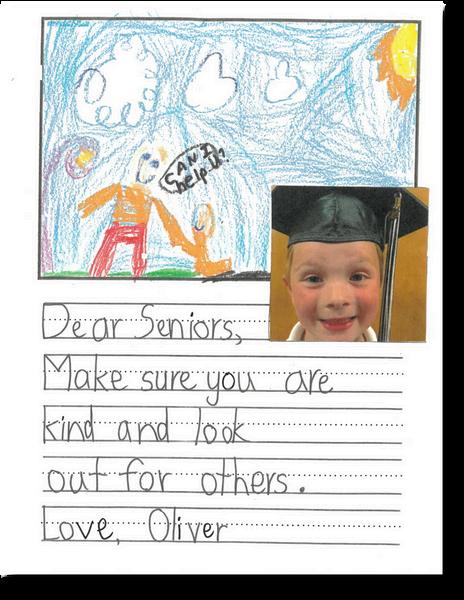 CAN I
help U?
Dear Seniors,
Make sure you are
kind and look
out for others.
Love, Oliver